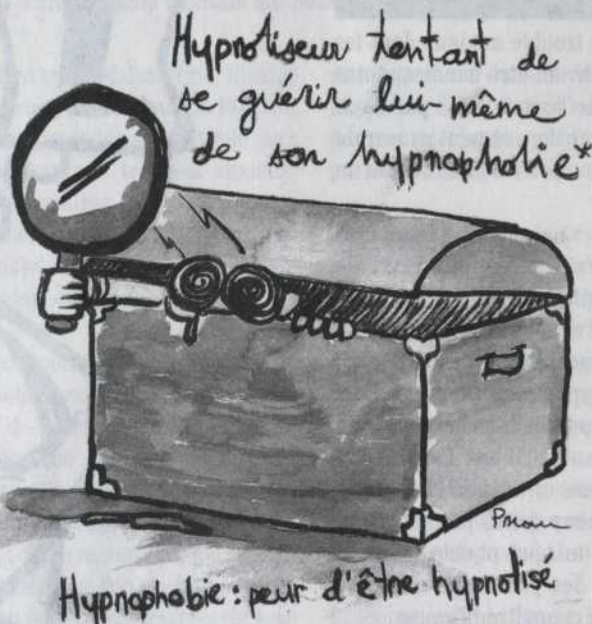 Hypnotiseur tentant de
se guérir lui-même
de son hypnophobie*
Hypnophobie : peur d'être hypnotisé